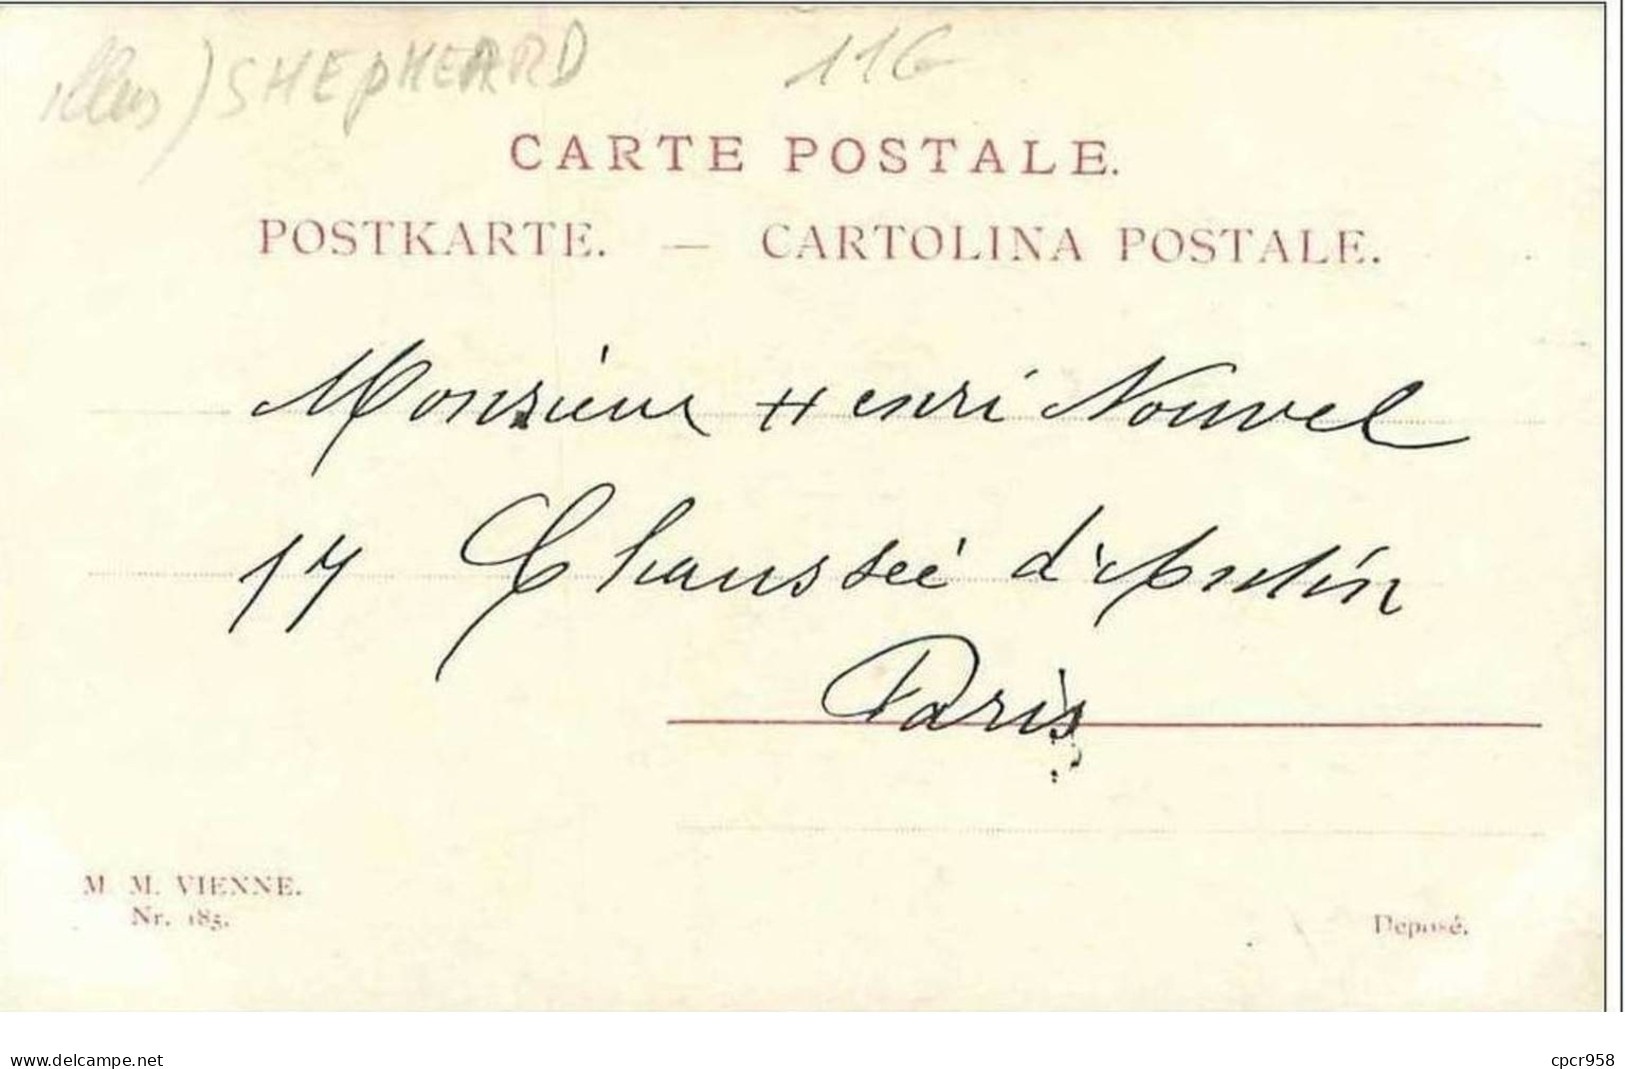 illus) SHEPHEARD 11G
CARTE POSTALE.
POSTKARTE. — CARTOLINA POSTALE.
Monsieur Henri Nouvel
17 Chaussée d'Antin
Paris
M. M. VIENNE.
Nr. 185.
Deposé.
www.delcampe.net
cpcr958